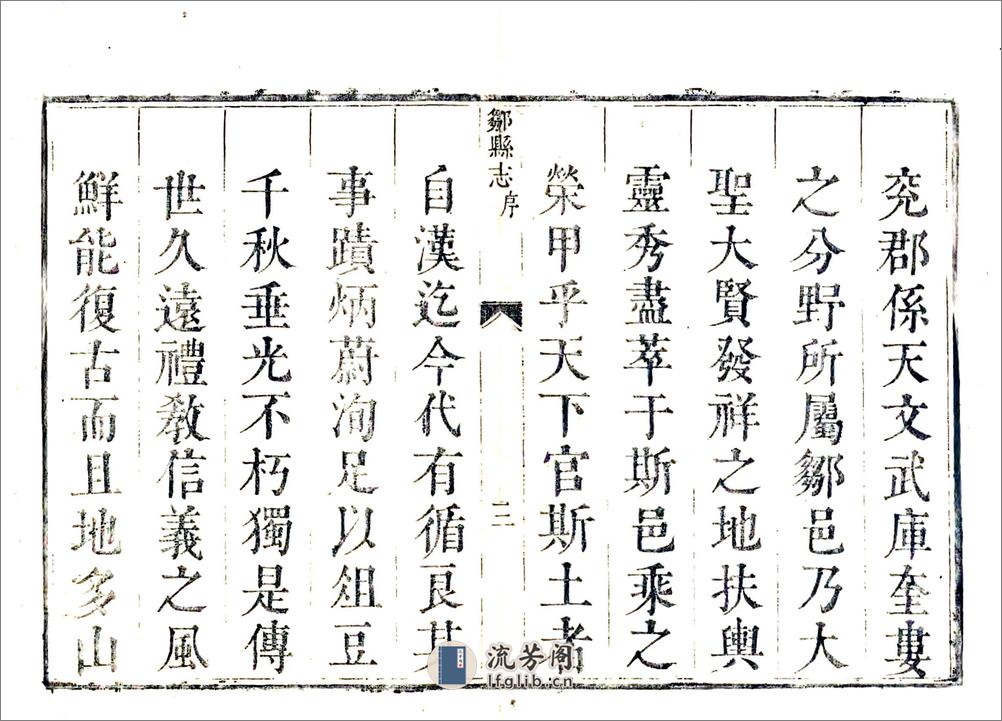 兖郡係天文武庫奎婁
之分野所屬鄒邑乃大
聖大賢發祥之地扶輿
靈秀盡萃于斯邑乘之
榮甲乎天下官斯土者
鄒縣志 序 二
自漢迄今代有循良其
事蹟炳蔚洵足以俎豆
千秋垂光不朽獨是傳
世久遠禮教信義之風
鮮能復古而且地多山
流芳阁
lfglib.cn